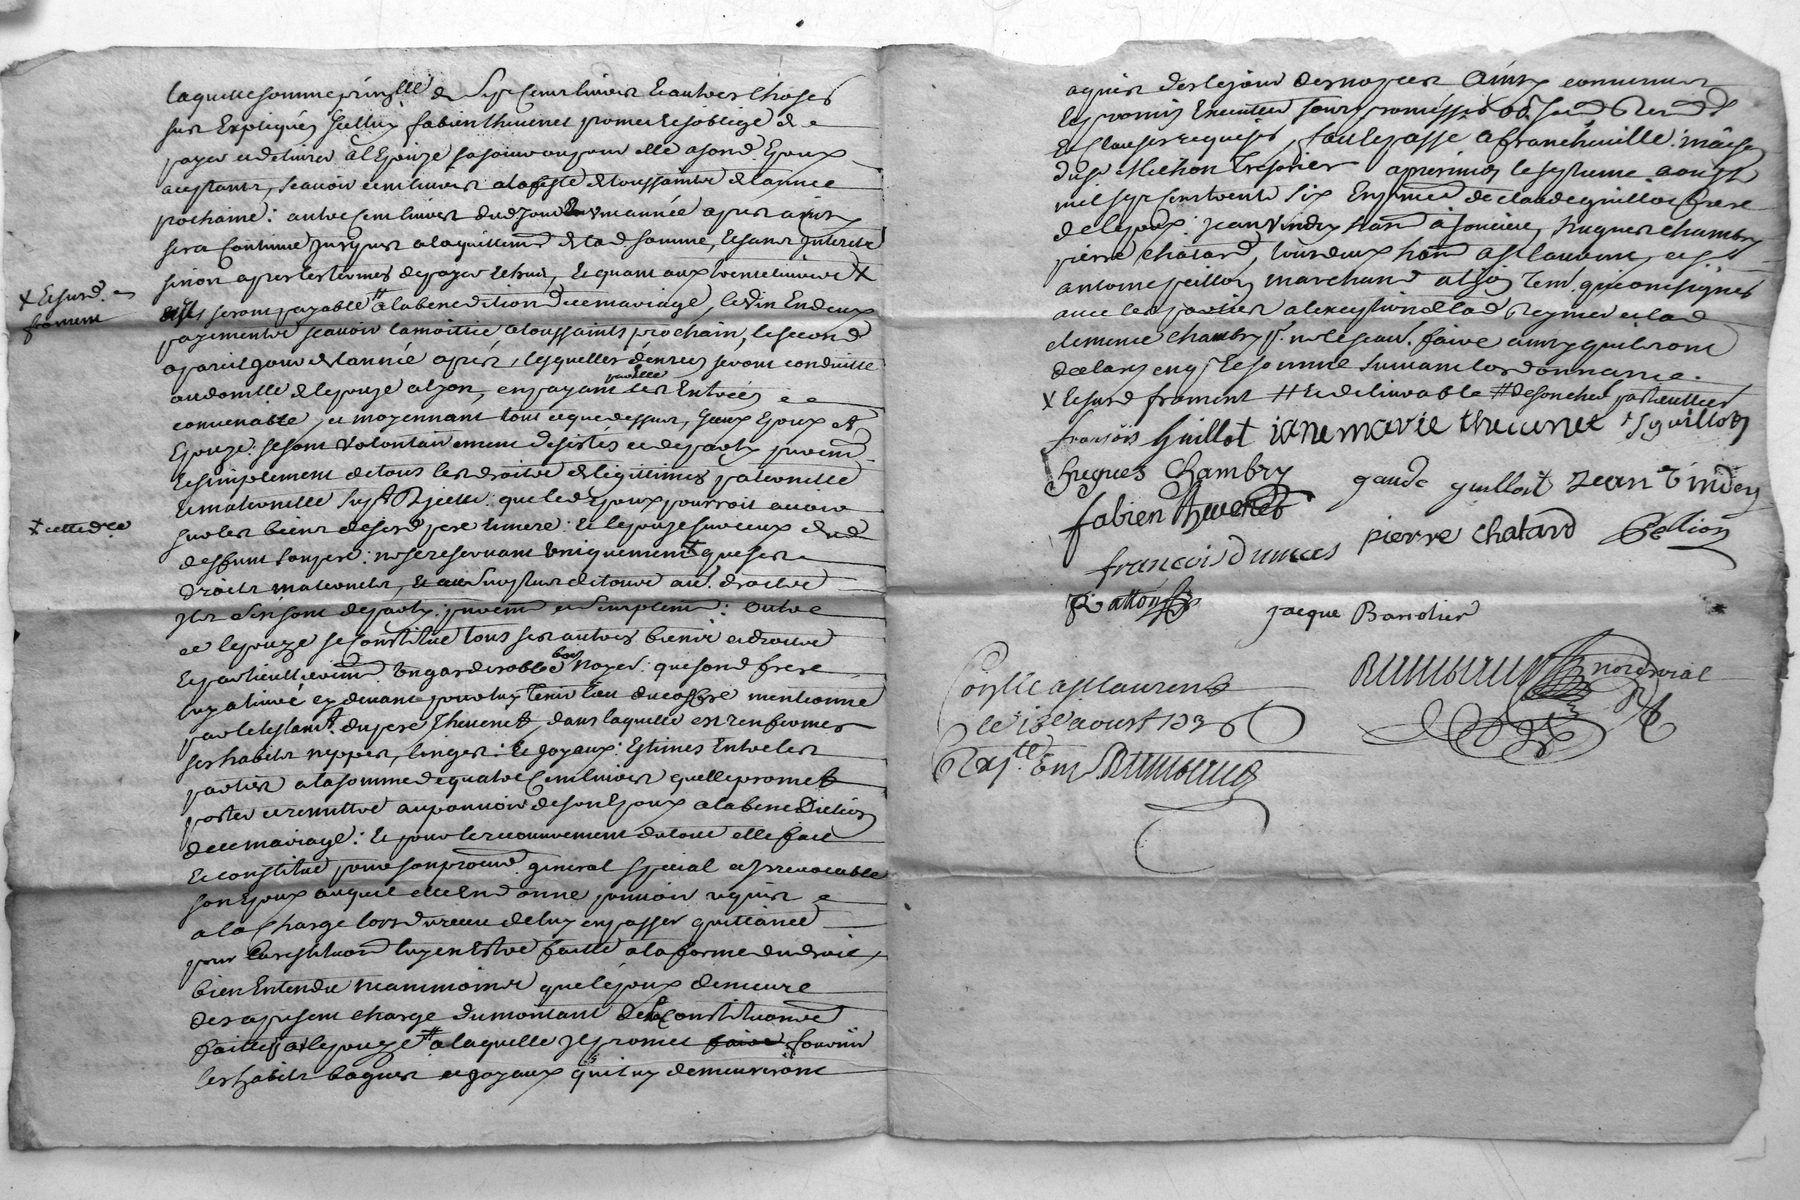 laquelle somme prinplle de sept cens livres et autres choses
sus Expliqués Jcelluy fabien thevenet promet et soblege de
payer et delivrer à l'Epouze sa soeur ou pour elle a sond. Epoux
aceptants, scavoir cent livres a la feste de toussaints de lannée
prochaine: autre cent livres dud jour en une année apres ainsy
sera continué jusques a laquittemt de lad somme, et sans Interets
sinon apres les termes de payer echus, et quant aux trente livres X
ils seront payable # a la benediction de ce mariage, le vin En deux
payements scavoir la moittié a toussaints prochain, le second
a pareil jour de lannée apres, lesquelles denrées seront conduitte
au domille de lepouze a lyon, en payant par elle les Entrées
convenable, et moyennant tout ce que dessus, Jceux Epoux et
Epouze se sont volontairement desistés et departy purem.
et simplement de tous les droits de legittimes paternelle
et maternelle supt que led Epoux pourroit avoir
sur les biens de sesd pere et mere: et lepouze sur ceux dud
deffunt son pere: ne se reservant uniquement X que ses
droits maternels, et au surplus de toute au. droits
Jls sen sont departy purem et simplem: outre
ce lepouze se constitue tous ses autres biens et droits
et particullierem. un garderobbe bois noyer: que sond frere
luy a livré cy devant pour luy tenir lieu du coffre mentionné
par le testamt. du pere thevenet, dans laquelle est renfermés
ses habits nippes, linges: et joyaux: Estimés Entre les
parties a la somme de quatre cent livres quelle promet
porter et remettre au pouvoir de son Epoux a la benediction
de ce mariage: et pour le recouvrement du tout elle fait
et constitue pour son procur general special et Jrrevocable
son Epoux auquel elle En donne pouvoir requis
a la charge lors du receu de luy en passer quittance
pour la restituon luy en Estre faitte a la forme du droit,
bien Entendu neammoins que lépoux demeure
des apresent chargé du montant de la Constitution
faitte par lepouze # a laquelle Jl promet fournir
les habits bagues et joyaux qui luy demeureront
X Et sur d.
froment
X cette d.
aquis des le jour des nopces Ainsy convenu
et promis Executer sous promisses obl. soumd. renond.
et clauses requises, fait et passé a francheville maison
du sr Michon tresorier apres midy le septieme aoust
mil sept cent trente six En presence de claude guillot frere
de lepoux: jean vindry hand. à soucieu, hugues chambry
pierre chatard, tous deux hand a st laurent, et sr
antoine peillon marchand a lyon tem. qui ont signés
avec les parties a lexception de lad Reymer et lad
clemence chambry p. ne le scav. faire ainsy quil ont
declaré enq. et sommé suivant lordonnance.
X Et sur d froment # et delivrable # de son chef particullier
françois Guillot jane marie thevenet
hugues Chambry gaude guillot Jean Vindry
fabien thevenet pierre chatard Peilion
francois dumas
Ratton Jacque Barotier
notre royal
Conllé a St Laurent
le 18e aoust 1736